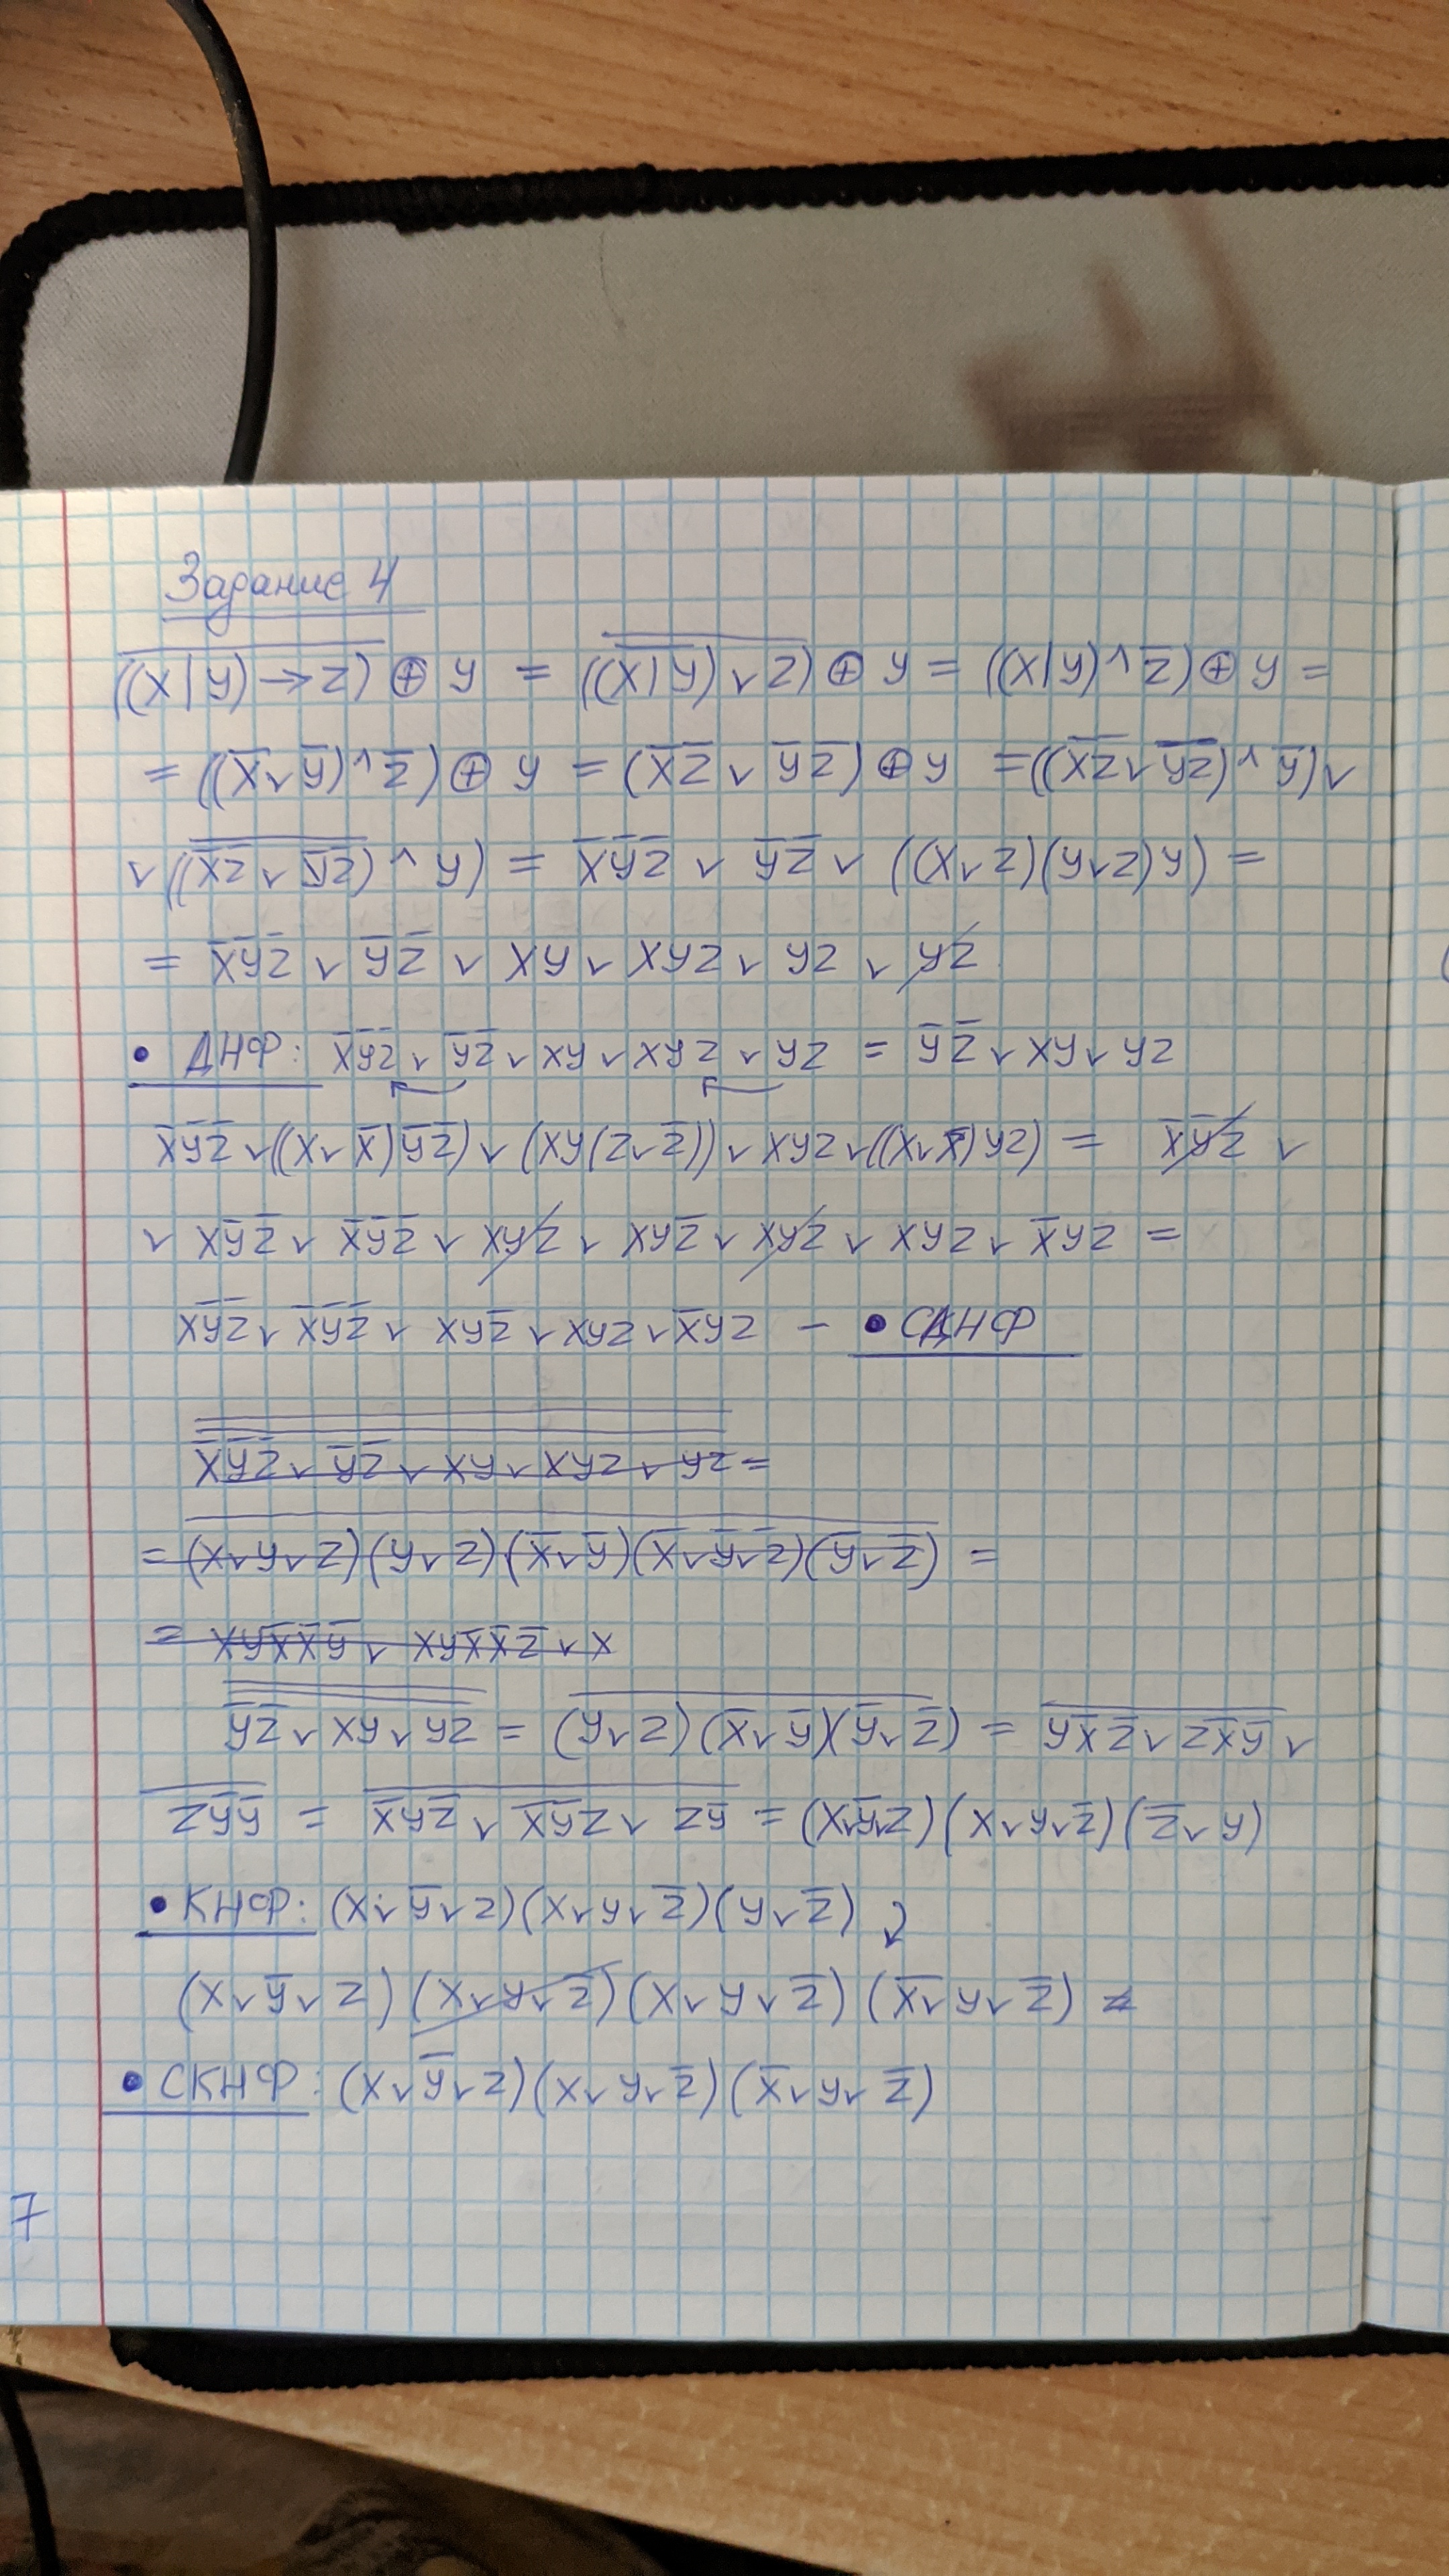 Задание 4
$\overline{((x|y)\to z)} \oplus y = \overline{(\overline{(x|y)} \vee z)} \oplus y = ((x|y) \wedge \bar{z}) \oplus y =$
$= ((\bar{x} \vee \bar{y}) \wedge \bar{z}) \oplus y = (\bar{x}\bar{z} \vee \bar{y}\bar{z}) \oplus y = ((\bar{x}\bar{z} \vee \bar{y}\bar{z}) \wedge \bar{y}) \vee$
$\vee ((\overline{\bar{x}\bar{z} \vee \bar{y}\bar{z}}) \wedge y) = \bar{x}\bar{y}\bar{z} \vee \bar{y}\bar{z} \vee ((x \vee z)(y \vee z)y) =$
$= \bar{x}\bar{y}\bar{z} \vee \bar{y}\bar{z} \vee xy \vee xyz \vee yz \vee yz$
• ДНФ: $\bar{x}\bar{y}\bar{z} \vee \bar{y}\bar{z} \vee xy \vee xyz \vee yz = \bar{y}\bar{z} \vee xy \vee yz$
$\bar{x}\bar{y}\bar{z} \vee ((x \vee \bar{x})\bar{y}\bar{z}) \vee (xy(z \vee \bar{z})) \vee xyz \vee ((x \vee \bar{x})yz) = \bar{x}\bar{y}\bar{z} \vee$
$\vee x\bar{y}\bar{z} \vee \bar{x}\bar{y}\bar{z} \vee xyz \vee xy\bar{z} \vee xyz \vee xyz \vee \bar{x}yz =$
$x\bar{y}\bar{z} \vee \bar{x}\bar{y}\bar{z} \vee xy\bar{z} \vee xyz \vee \bar{x}yz$ – • СДНФ
$\overline{\overline{\bar{x}\bar{y}\bar{z} \vee \bar{y}\bar{z} \vee xy \vee xyz \vee yz}} =$
$= \overline{(x \vee y \vee z)(y \vee z)(\bar{x} \vee \bar{y})(\bar{x} \vee \bar{y} \vee \bar{z})(\bar{y} \vee \bar{z})} =$
$= xy\bar{x}\bar{x}\bar{y} \vee xy\bar{x}\bar{x}\bar{z} \vee x$
$\overline{\overline{\bar{y}\bar{z} \vee xy \vee yz}} = \overline{(y \vee z)(\bar{x} \vee \bar{y})(\bar{y} \vee \bar{z})} = \overline{y\bar{x}\bar{z} \vee z\bar{x}\bar{y}} \vee$
$\overline{z\bar{y}\bar{y}} = \overline{\bar{x}y\bar{z} \vee \bar{x}\bar{y}z \vee z\bar{y}} = (x \vee \bar{y} \vee z)(x \vee y \vee \bar{z})(\bar{z} \vee y)$
• КНФ: $(x \vee \bar{y} \vee z)(x \vee y \vee \bar{z})(y \vee \bar{z})$
$(x \vee \bar{y} \vee z)(x \vee y \vee \bar{z})(x \vee y \vee \bar{z})(\bar{x} \vee y \vee \bar{z})$
• СКНФ: $(x \vee \bar{y} \vee z)(x \vee y \vee \bar{z})(\bar{x} \vee y \vee \bar{z})$
7